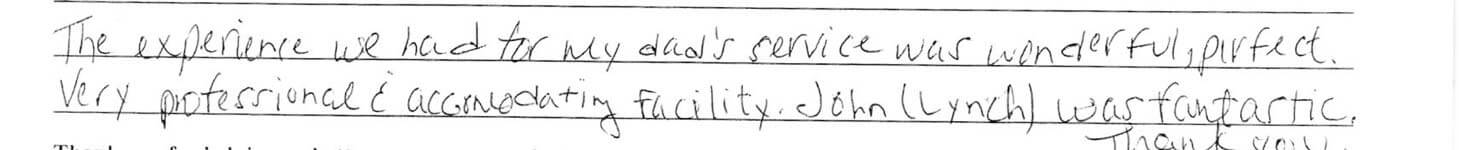 The experience we had for my dad's service was wonderful, perfect.
Very professional & accomodating facility. John (Lynch) was fantastic.
Thank you